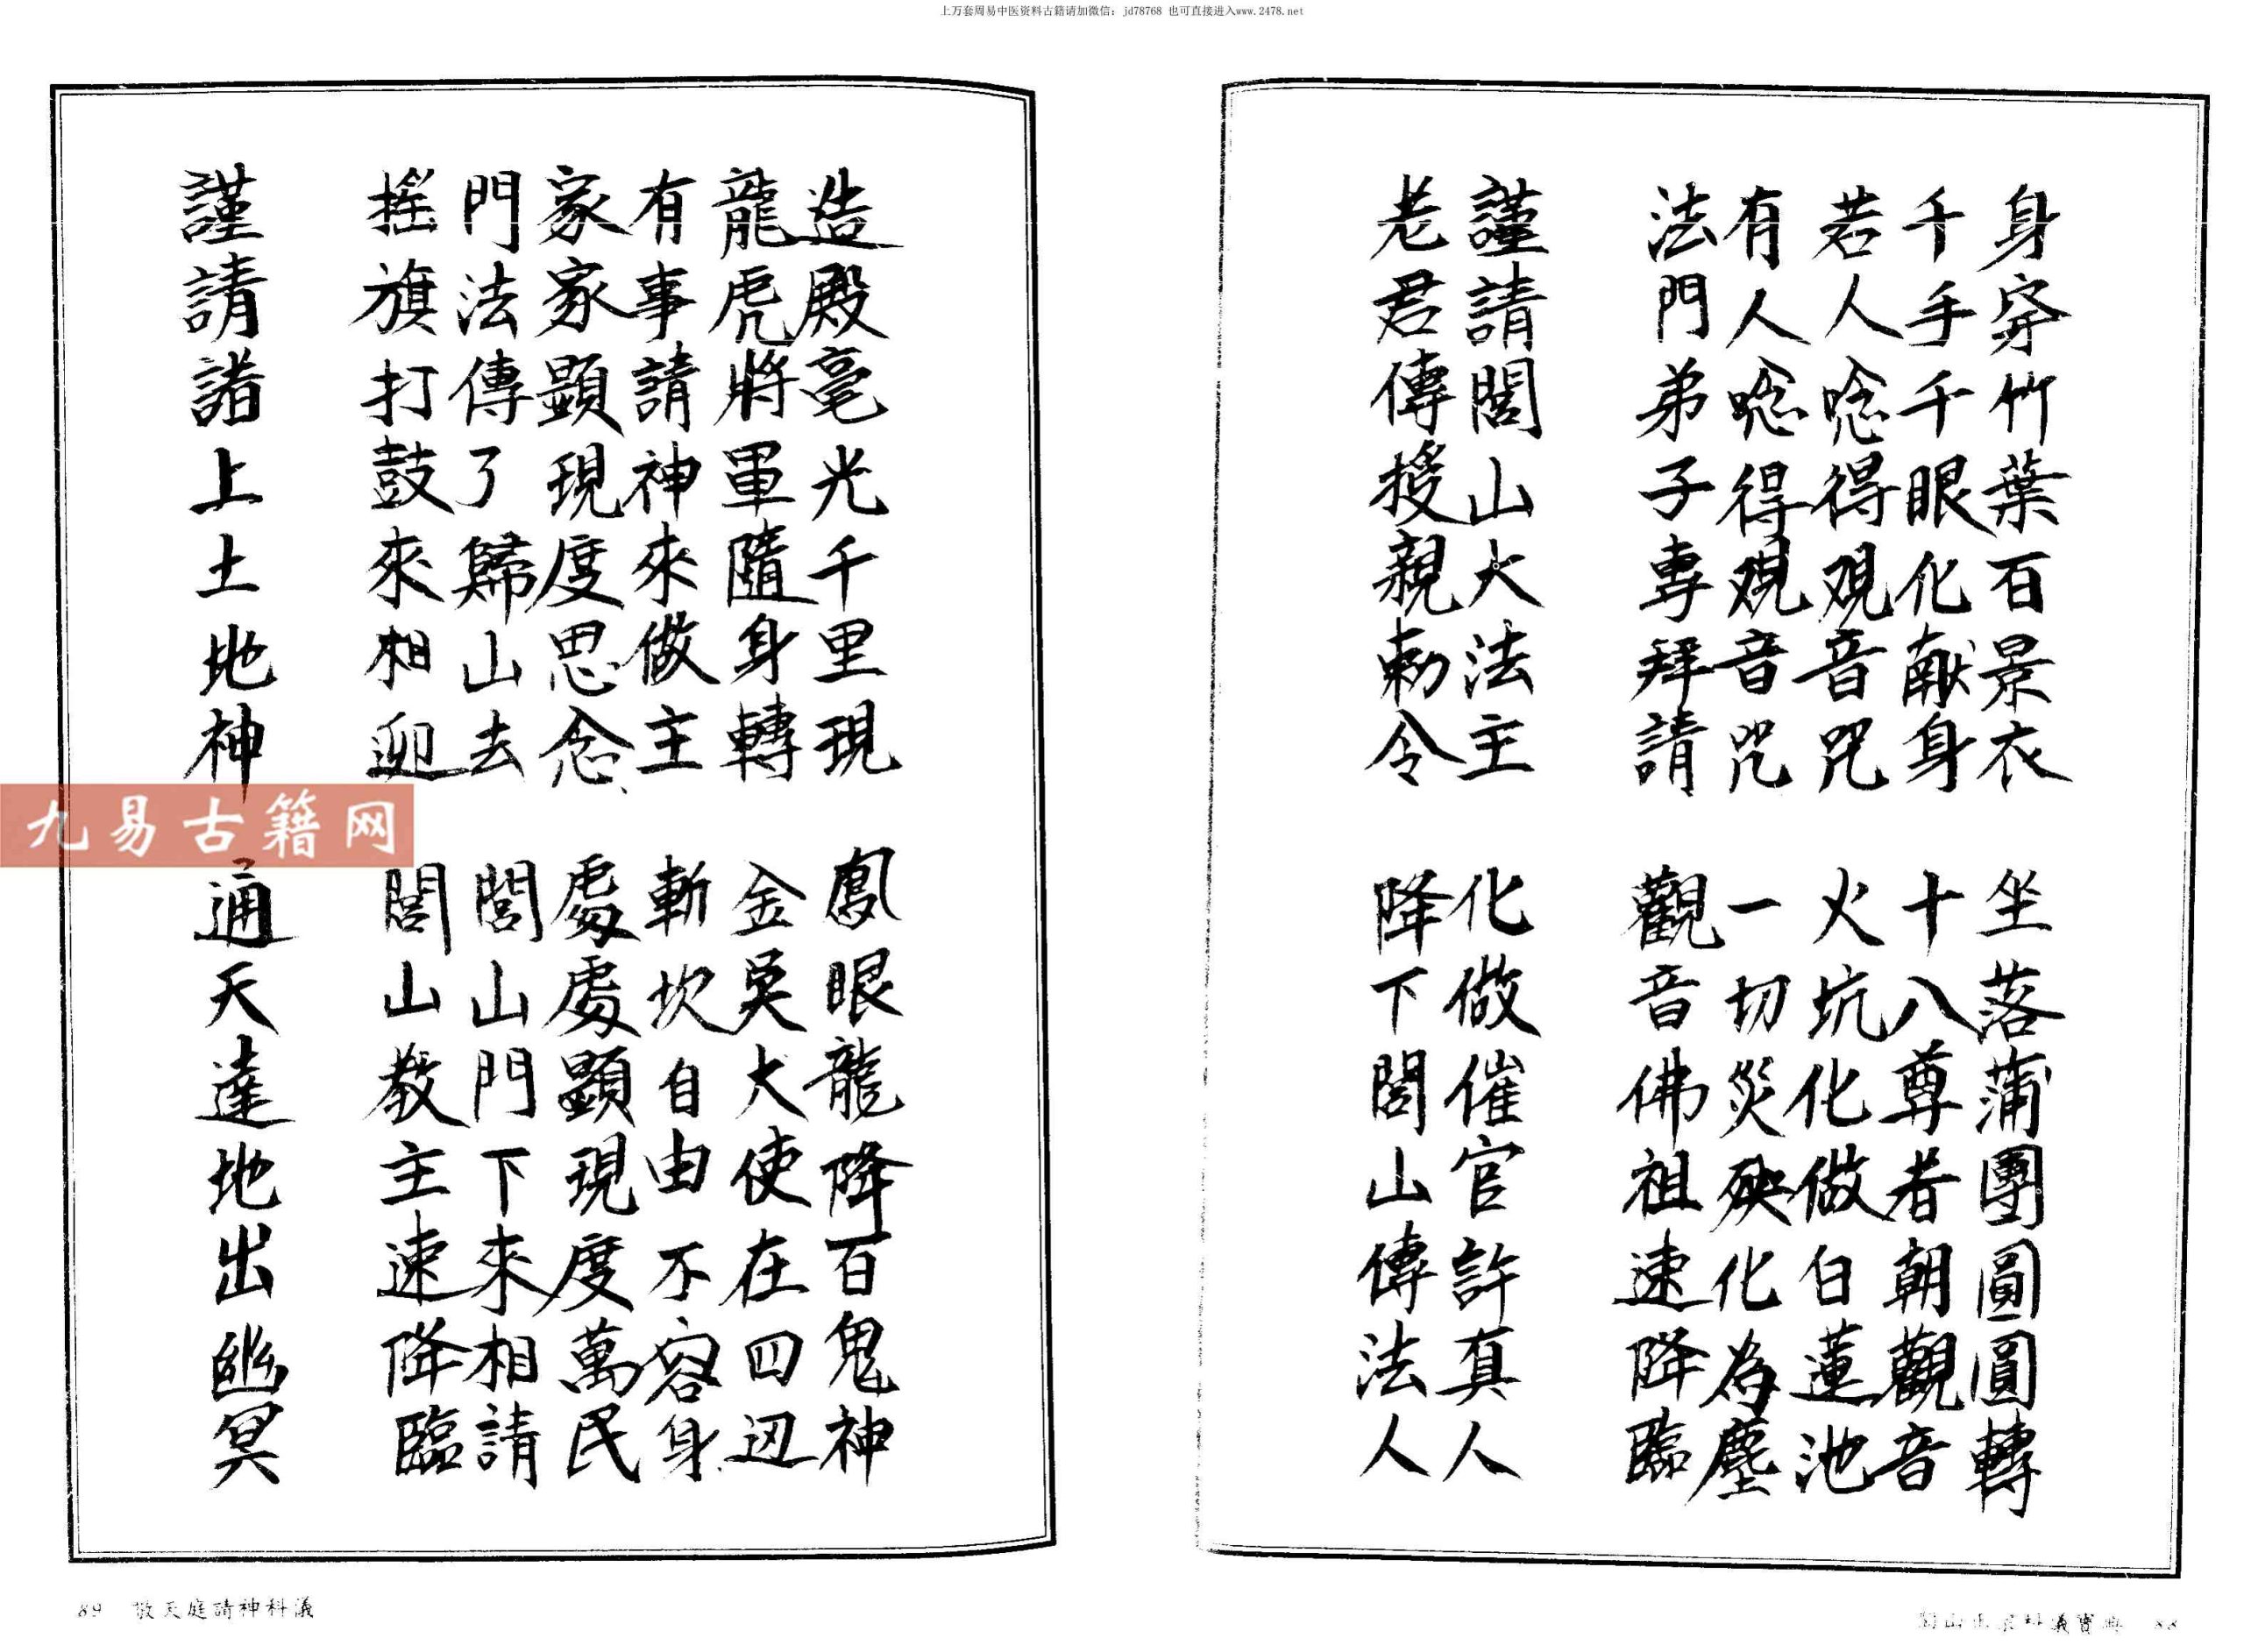 上万套周易中医资料古籍请加微信：jd78768 也可直接进入www.2478.net
身穿竹葉百景衣 坐落蒲團圓圓轉
千手千眼化献身 十八尊者朝觀音
若人唸得观音咒 火坑化做白蓮池
有人唸得观音咒 一切災殃化為塵
法門弟子專拜請 觀音佛祖速降臨
謹請閭山大法主 化做催官許真人
老君傳授親勅令 降下閭山傳法人
造殿毫光千里現 鳳眼龍降百鬼神
龍虎將軍隨身轉 金吳大使在四边
有事請神來做主 斬坎自由不容身
家家顕現度思念 處處顕現度萬民
門法傳了歸山去 閭山門下來相請
搖旗打鼓來相迎 閭山教主速降臨
謹請諸上土地神 通天達地出幽冥
九易古籍网
89 敬天庭請神科議
閭山正宗科義寶典 88